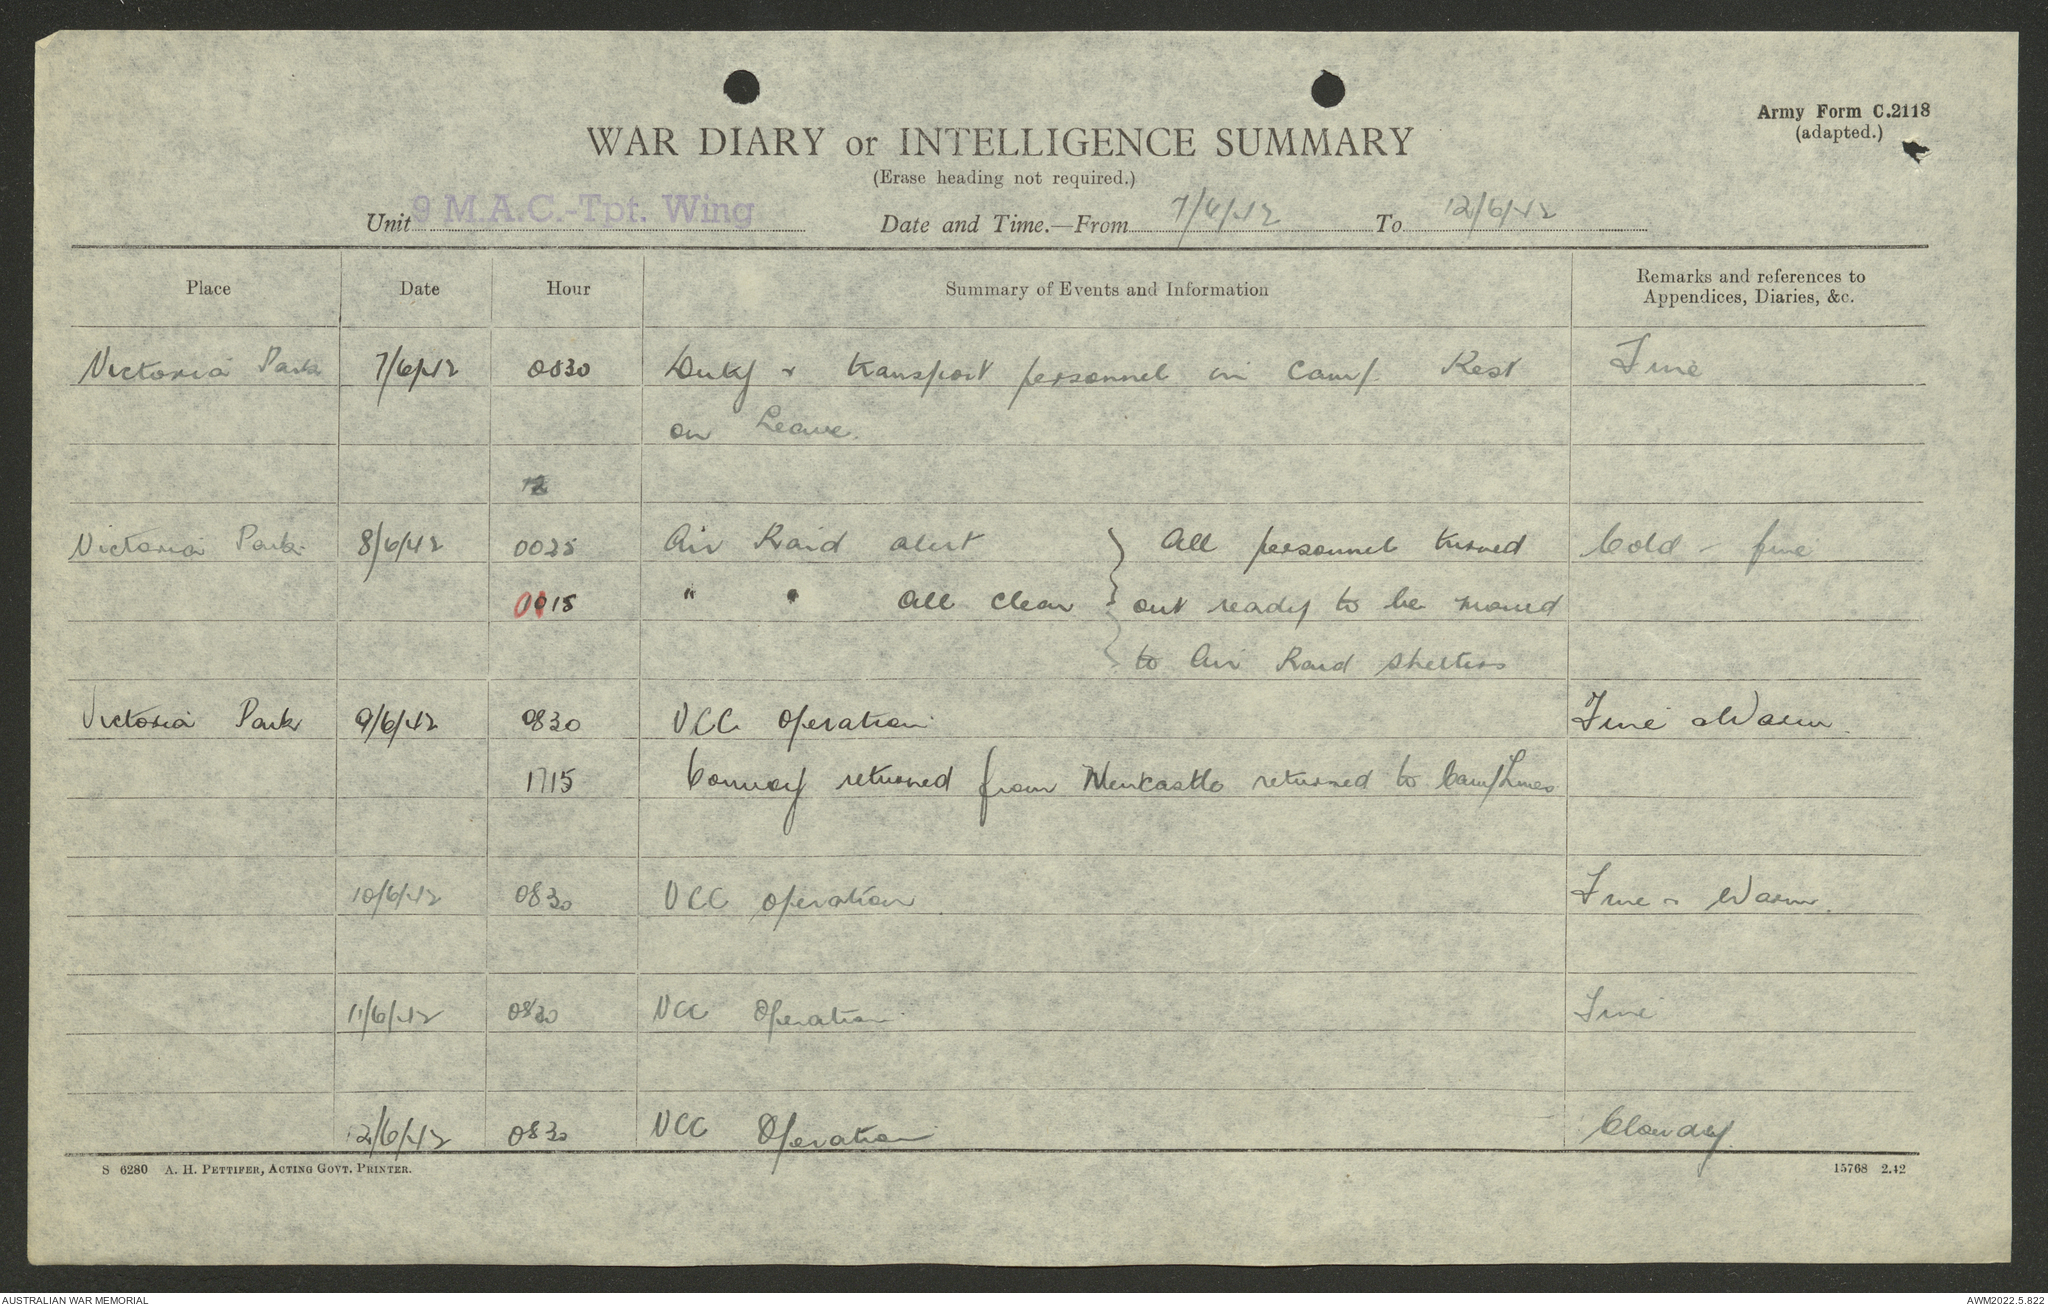 Army Form C.2118
(adapted.)
WAR DIARY or INTELLIGENCE SUMMARY
(Erase heading not required.)
Unit 9 M.A.C.-Tpt. Wing Date and Time.—From 7/6/42 To 12/6/42
Place Date Hour Summary of Events and Information Remarks and references to
Appendices, Diaries, &c.
Victoria Park 7/6/42 0830 Duty & transport personnel in camp. Rest Fine
on Leave.
12
Victoria Park 8/6/42 0025 Air Raid alert } All personnel turned Cold - fine
0115 " " All clear } out ready to be moved
} to Air Raid shelters
Victoria Park 9/6/42 0830 VCC operation Fine & Warm.
1715 Convoy returned from Newcastle returned to Camp Lines
10/6/42 0830 VCC operation. Fine & Warm.
11/6/42 0830 VCC Operation Fine
12/6/42 0830 VCC Operation Cloudy.
S 6280 A. H. PETTIFER, ACTING GOVT. PRINTER. 15768 2.42
AUSTRALIAN WAR MEMORIAL AWM2022.5.822